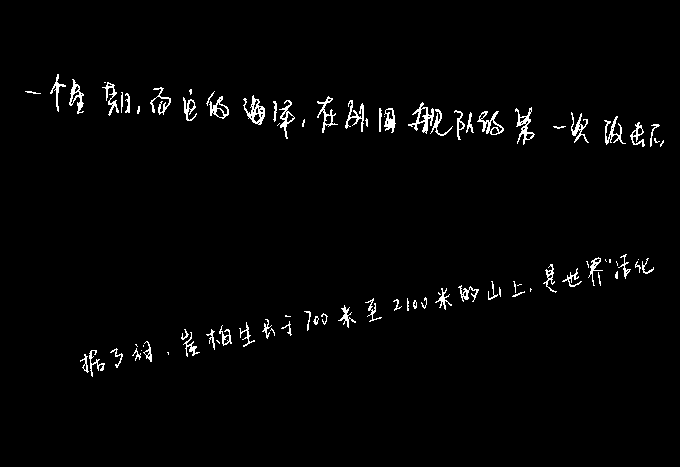 一个星期，而它的海军，在外国舰队的第一次攻击后
据了解，崖柏生长于700米至2100米的山上，是世界“活化